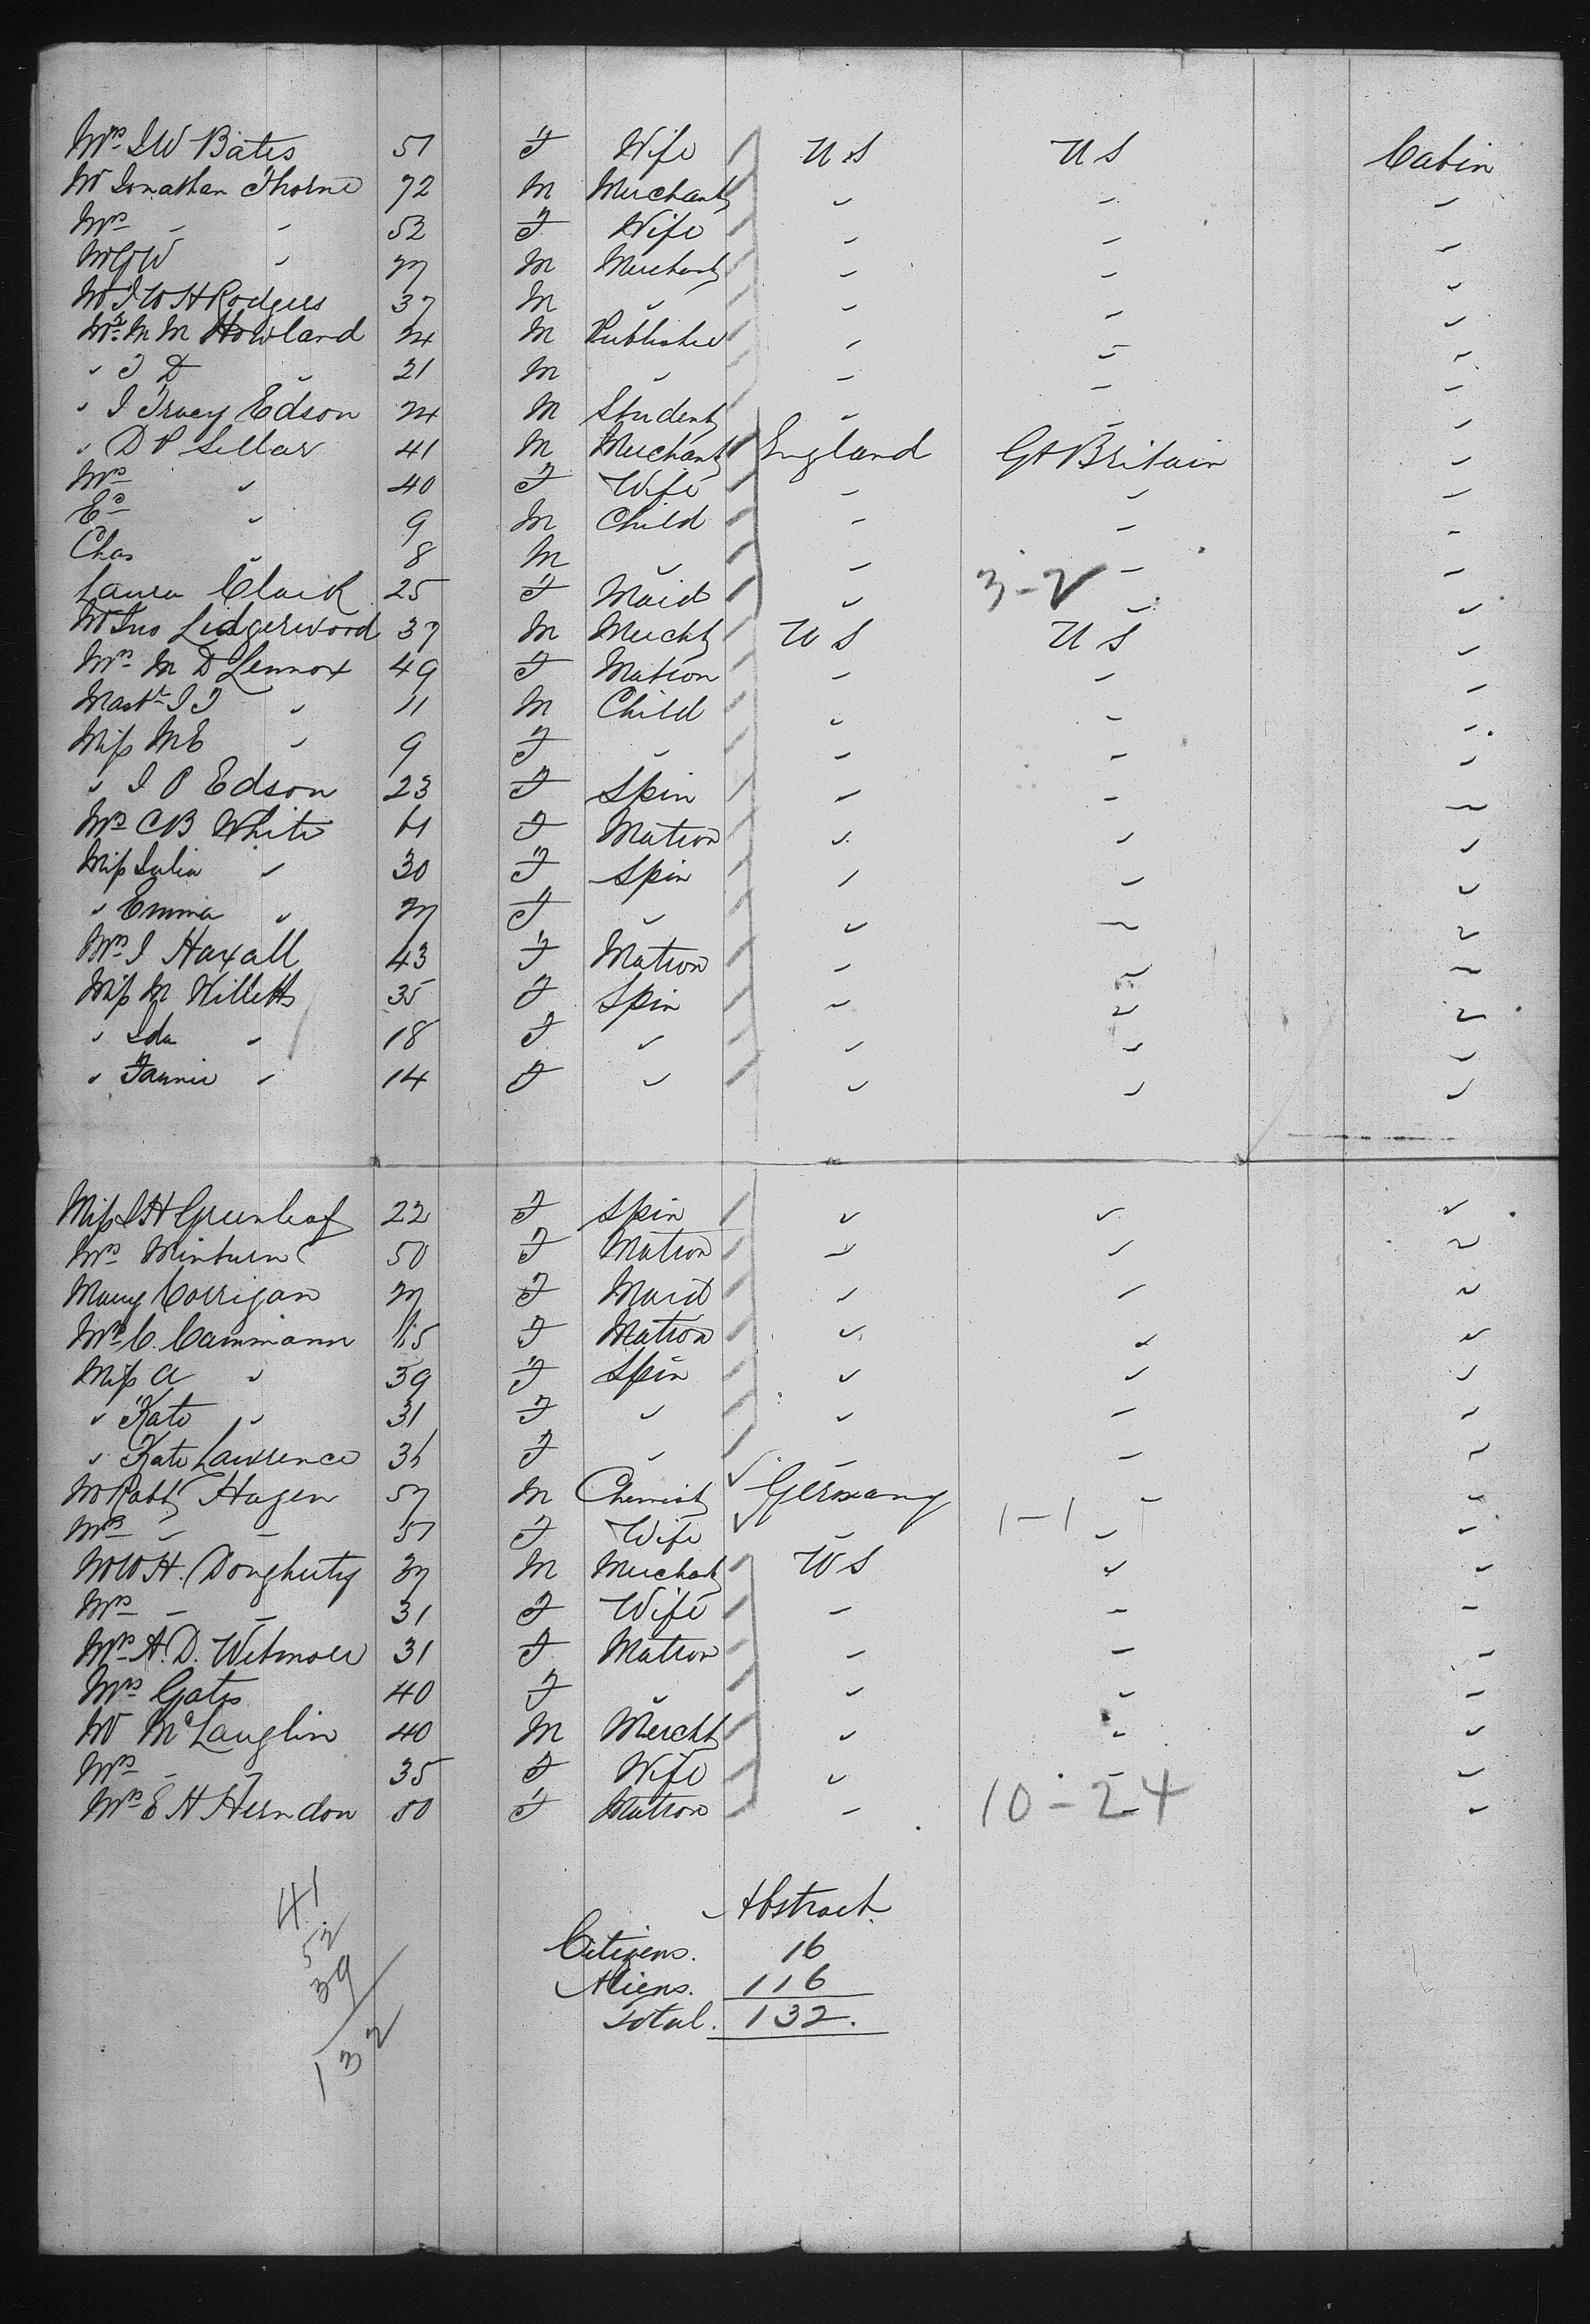 Mrs I W Bates 51 F Wife U S U S Cabin
Mr Jonathan Thorne 72 M Merchant " " "
Mrs " " 52 F Wife " " "
Mr G W " 27 M Merchant " " "
Mr J W H Rodgers 37 M " " " "
Mr M M Howland 24 M Publisher " " "
" J D " 21 M " " " "
" J Tracy Edson 24 M Student " " "
" D P Sellar 41 M Merchant England Gt Britain "
Mrs " 40 F Wife " " "
Ed " 9 M Child " " "
Chas " 8 M " " " "
Laura Clark 25 F Maid " 3-2 " "
Mr Jno Lidgerwood 37 M Mercht U S U S "
Mrs M D Lennox 49 F Matron " " "
Mastr J J " 11 M Child " " "
Miss M E " 9 F " " " "
" J P Edson 23 F Spin " " "
Mrs C B White 61 F Matron " " "
Miss Julia " 30 F Spin " " "
" Emma " 27 F " " " "
Mrs J Haxall 43 F Matron " " "
Miss M Willetts 35 F Spin " " "
" Ida " 18 F " " " "
" Fannie " 14 F " " " "
Miss L H Greenleaf 22 F Spin " " "
Mrs Minturn 50 F Matron " " "
Mary Corrigan 27 F Maid " " "
Mrs C. Cammann 65 F Matron " " "
Miss A " 39 F Spin " " "
" Kate " 31 F " " " "
" Kate Lawrence 36 F " " " "
Mr Robt Hagen 57 M Chemist Germany " "
Mrs " " 51 F Wife " 1-1 " "
Mr W H. Dougherty 37 M Merchant U S " "
Mrs " " 31 F Wife " " "
Mrs A. D. Wetmore 31 F Matron " " "
Mrs Gates 40 F " " " "
Mr McLauglin 40 M Mercht " " "
Mrs " " 35 F Wife " " "
Mrs E H Herndon 50 F Matron " 10-24 "
41
52
39
132
Abstract.
Citizens. 16
Aliens. 116
Total. 132.